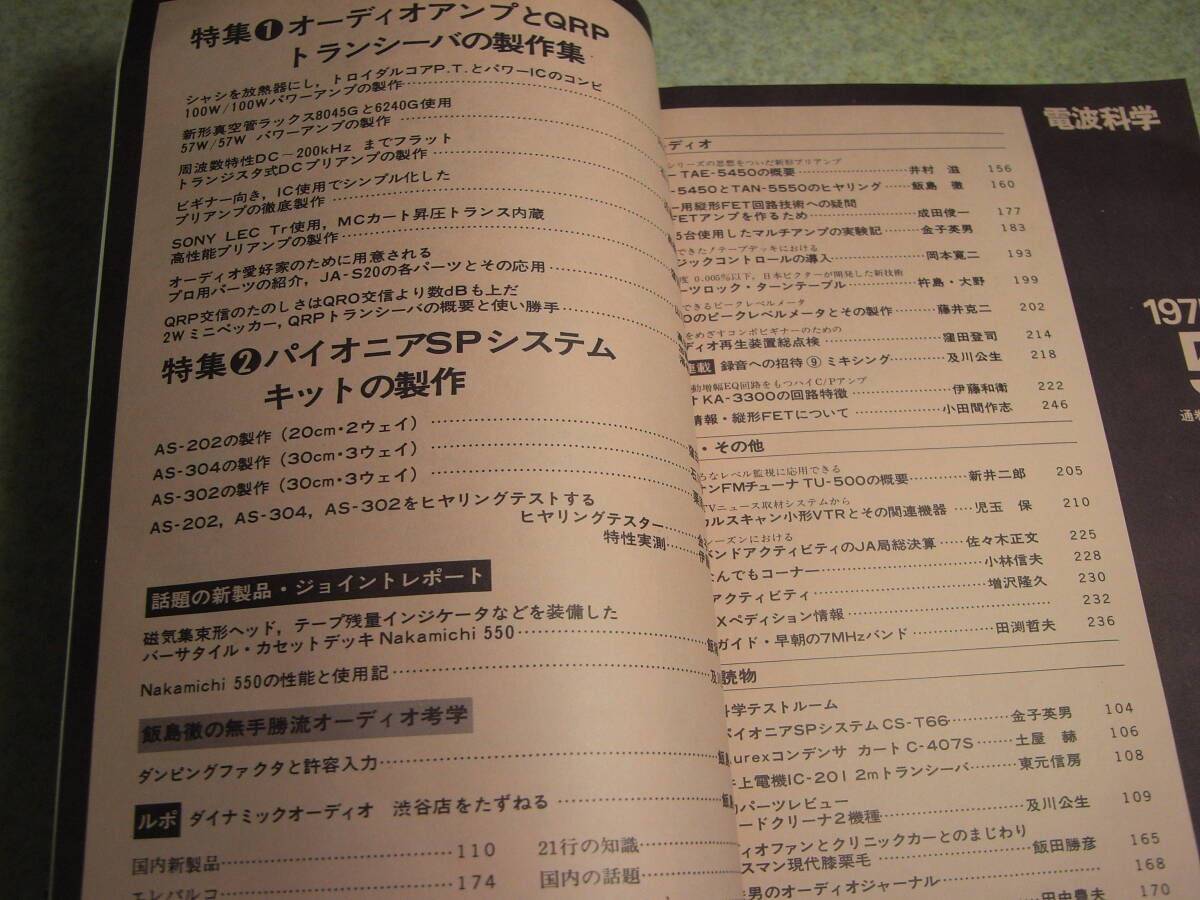 特集❶オーディオアンプとQRP
トランシーバの製作集
シャシを放熱器にし，トロイダルコアP.T.とパワーICのコンビ
100W/100Wパワーアンプの製作
新形真空管ラックス8045Gと6240G使用
57W/57W パワーアンプの製作
周波数特性DC－200kHz までフラット
トランジスタ式DCプリアンプの製作
ビギナー向き，IC使用でシンプル化した
プリアンプの徹底製作
SONY LEC Tr使用，MCカート昇圧トランス内蔵
高性能プリアンプの製作
オーディオ愛好家のために用意される
プロ用パーツの紹介，JA-S20の各パーツとその応用
QRP交信のたのしさはQRO交信より数dBも上だ
2Wミニペッカー，QRPトランシーバの概要と使い勝手
特集❷パイオニアSPシステム
キットの製作
AS-202の製作（20cm・2ウェイ）
AS-304の製作（30cm・3ウェイ）
AS-302の製作（30cm・3ウェイ）
AS-202，AS-304，AS-302をヒヤリングテストする
ヒヤリングテスター
特性実測
話題の新製品・ジョイントレポート
磁気集束形ヘッド，テープ残量インジケータなどを装備した
バーサタイル・カセットデッキNakamichi 550
Nakamichi 550の性能と使用記
飯島徹の無手勝流オーディオ考学
ダンピングファクタと許容入力
ルポ ダイナミックオーディオ 渋谷店をたずねる
国内新製品 110
エレバルコ 174
21行の知識
国内の話題
電波科学
197
ディオ
シリーズの思想をついだ新形プリアンプ
TAE-5450の概要 井村 滋 156
-5450とTAN-5550のヒヤリング 飯島 徹 160
ー用縦形FET回路技術への疑問
FETアンプを作るため 成田俊一 177
5台使用したマルチアンプの実験記 金子英男 183
できた！テープデッキにおける
ジックコントロールの導入 岡本寛二 193
度 0.005%以下，日本ビクターが開発した新技術
ーツロック・ターンテーブル 杵島・大野 199
できるピークレベルメータ
Oのピークレベルメータとその製作 藤井克二 202
をめざすコンポビギナーのための
ディオ再生装置総点検 窪田登司 214
連載 録音への招待⑨ ミキシング 及川公生 218
動増幅EQ回路をもつハイC/Pアンプ
KA-3300の回路特徴 伊藤和衛 222
情報・縦形FETについて 小田間作志 246
・その他
ろなレベル監視に応用できる
オンFMチューナ TU-500の概要 新井二郎 205
TVニュース取材システムから
カルスキャン小形VTRとその関連機器 児玉 保 210
シーズンにおける
バンドアクティビティのJA局総決算 佐々木正文 225
なんでもコーナー 小林信夫 228
アクティビティ 増沢隆久 230
Xペディション情報 232
ガイド・早朝の7MHzバンド 田渕哲夫 236
読物
科学テストルーム
パイオニアSPシステム CS-T66 金子英男 104
urexコンデンサ カート C-407S 土屋 赫 106
井上電機IC-201 2mトランシーバ 東元信房 108
パーツレビュー
ードクリーナ2機種 及川公生 109
ディオファンとクリニックカーとのまじわり
スマン現代膝栗毛 飯田勝彦 165
男のオーディオジャーナル 168
田中豊夫 170